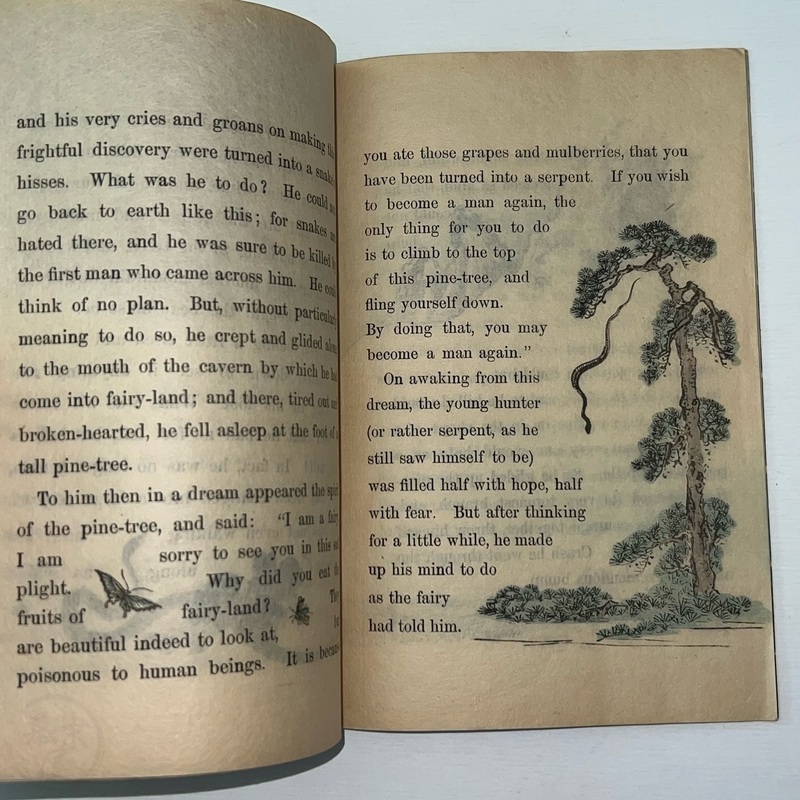 and his very cries and groans on making
frightful discovery were turned into a
hisses. What was he to do? He could
go back to earth like this; for snakes
hated there, and he was sure to be killed
the first man who came across him. He
think of no plan. But, without particular
meaning to do so, he crept and glided
to the mouth of the cavern by which he
come into fairy-land; and there, tired out
broken-hearted, he fell asleep at the foot of
tall pine-tree.
To him then in a dream appeared the
of the pine-tree, and said: "I am a
I am sorry to see you in this
plight. Why did you eat
fruits of fairy-land?
are beautiful indeed to look at,
poisonous to human beings. It is
you ate those grapes and mulberries, that you
have been turned into a serpent. If you wish
to become a man again, the
only thing for you to do
is to climb to the top
of this pine-tree, and
fling yourself down.
By doing that, you may
become a man again."
On awaking from this
dream, the young hunter
(or rather serpent, as he
still saw himself to be)
was filled half with hope, half
with fear. But after thinking
for a little while, he made
up his mind to do
as the fairy
had told him.